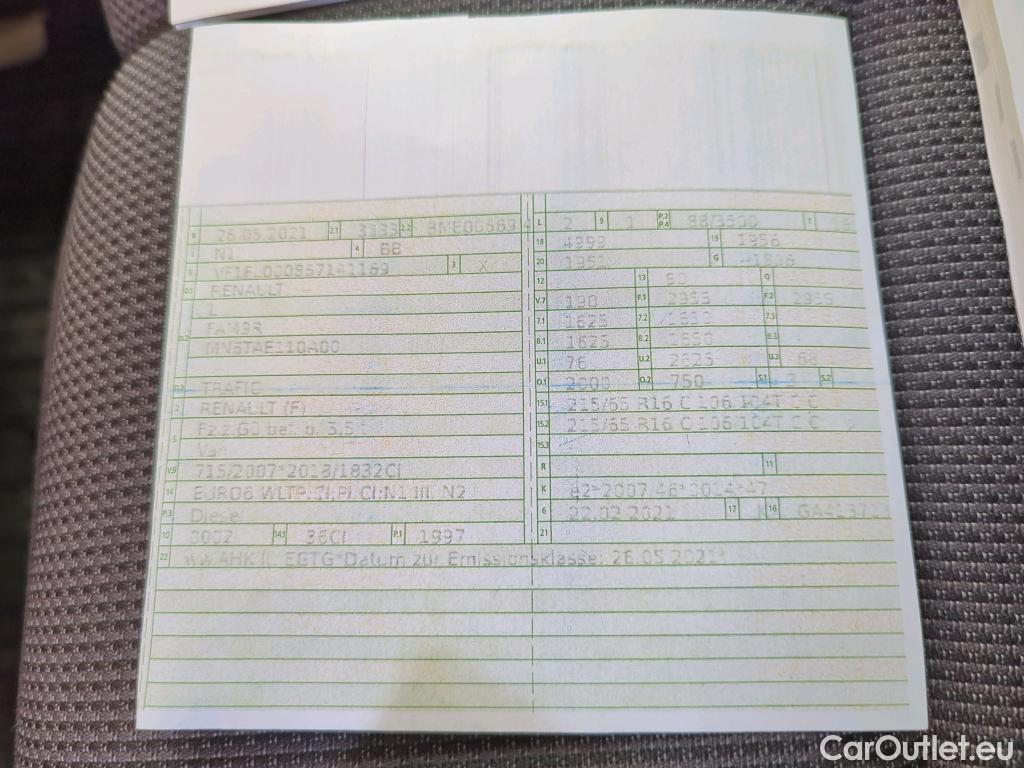 B 26.05.2021 2.1 3333 2.2
J N1 4 BB
E 3 X
D.1 RENAULT
L
D.2 FAM9R
MN6TAE110A00
D.3 TRAFIC
2 RENAULT (F)
5 Fz.z.Gü bef. b. 3,5 t
Van
V.9 715/2007*2018/1832CI
14 EURO6,WLTP;CI;PI,CI;N1 III, N2
P.3 Diesel
10 0002 14.1 36CI P.1 1997
22 ww.AHK lt. EGTG*Datum zur Emissionsklasse: 26.05.2021*
L 2 9 1 P.2 P.4 88/3500 T
18 4999 19 1956
20 1951 G
12 13 80 Q
V.7 190 F.1 2955 F.2 2955
7.1 1625 7.2 1650 7.3
8.1 1625 8.2 1650 8.3
U.1 76 U.2 2625 U.3 68
O.1 2000 O.2 750 S.1 3 S.2
15.1 215/65 R16 C 106/104T C C
15.2 215/65 R16 C 106/104T C C
15.3
R 11
K e2*2007/46*0014*47
6 22.02.2021 17 K 16
21
CarOutlet.eu